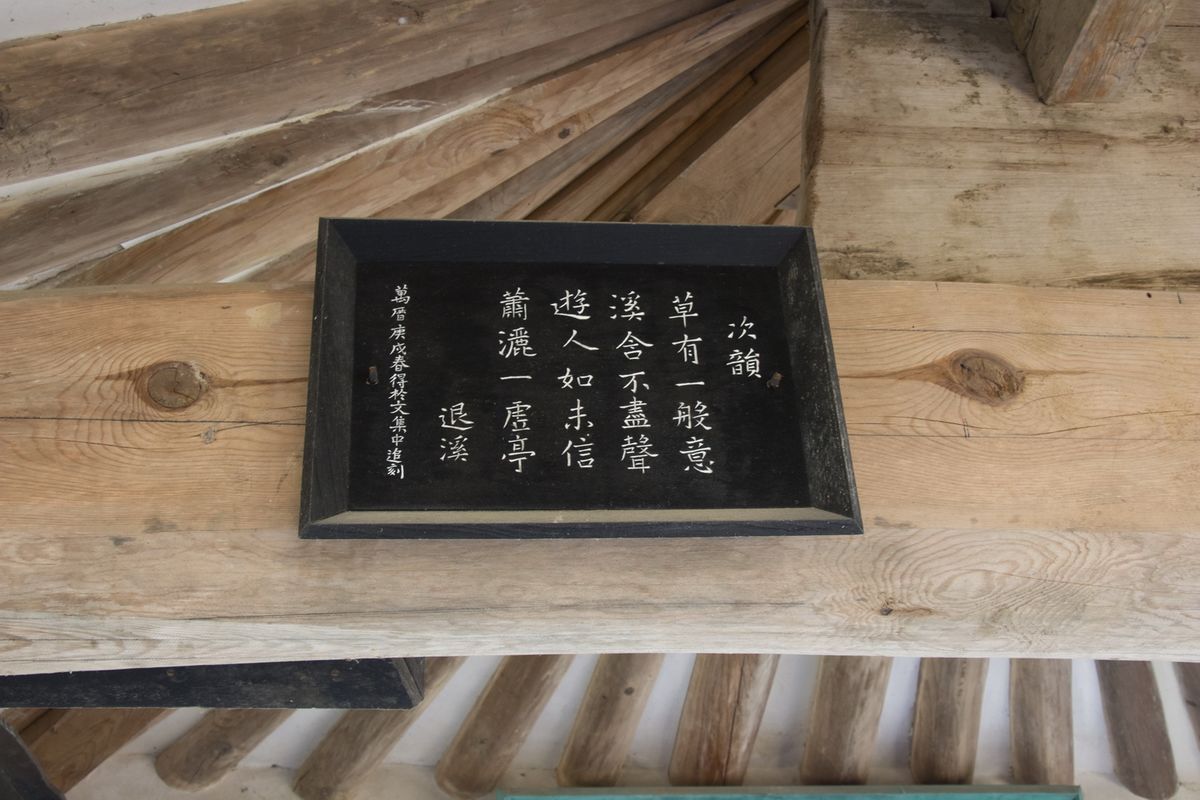 次韻
草有一般意
溪含不盡聲
遊人如未信
蕭灑一虛亭
退溪
萬曆庚戌春得於文集中追刻